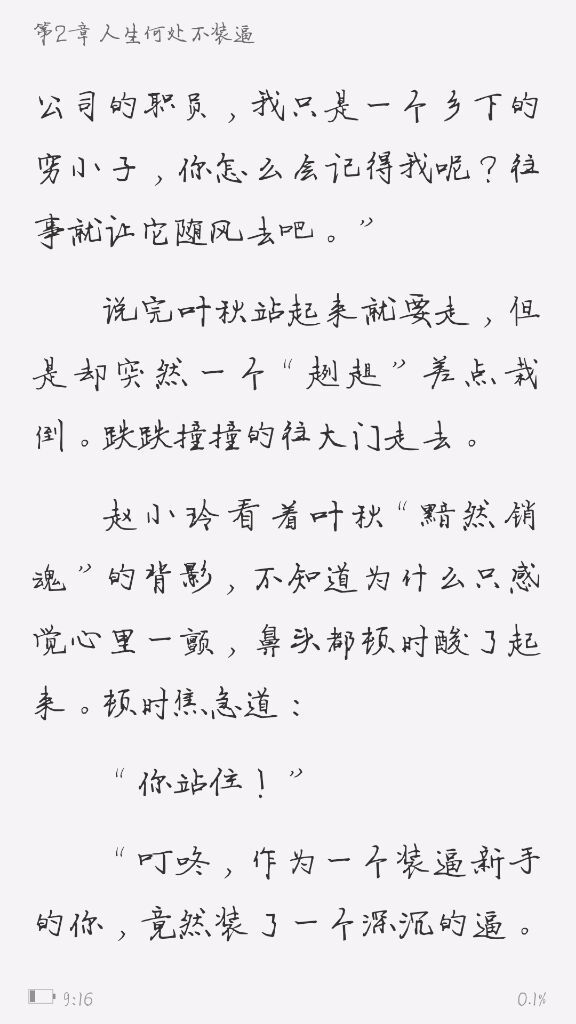 第2章 人生何处不装逼
公司的职员，我只是一个乡下的
穷小子，你怎么会记得我呢？往
事就让它随风去吧。”
说完叶秋站起来就要走，但
是却突然一个“趔趄”差点栽
倒。跌跌撞撞的往大门走去。
赵小玲看着叶秋“黯然销
魂”的背影，不知道为什么只感
觉心里一颤，鼻头都顿时酸了起
来。顿时焦急道：
“你站住！”
“叮咚，作为一个装逼新手
的你，竟然装了一个深沉的逼。
9:16
0.1%